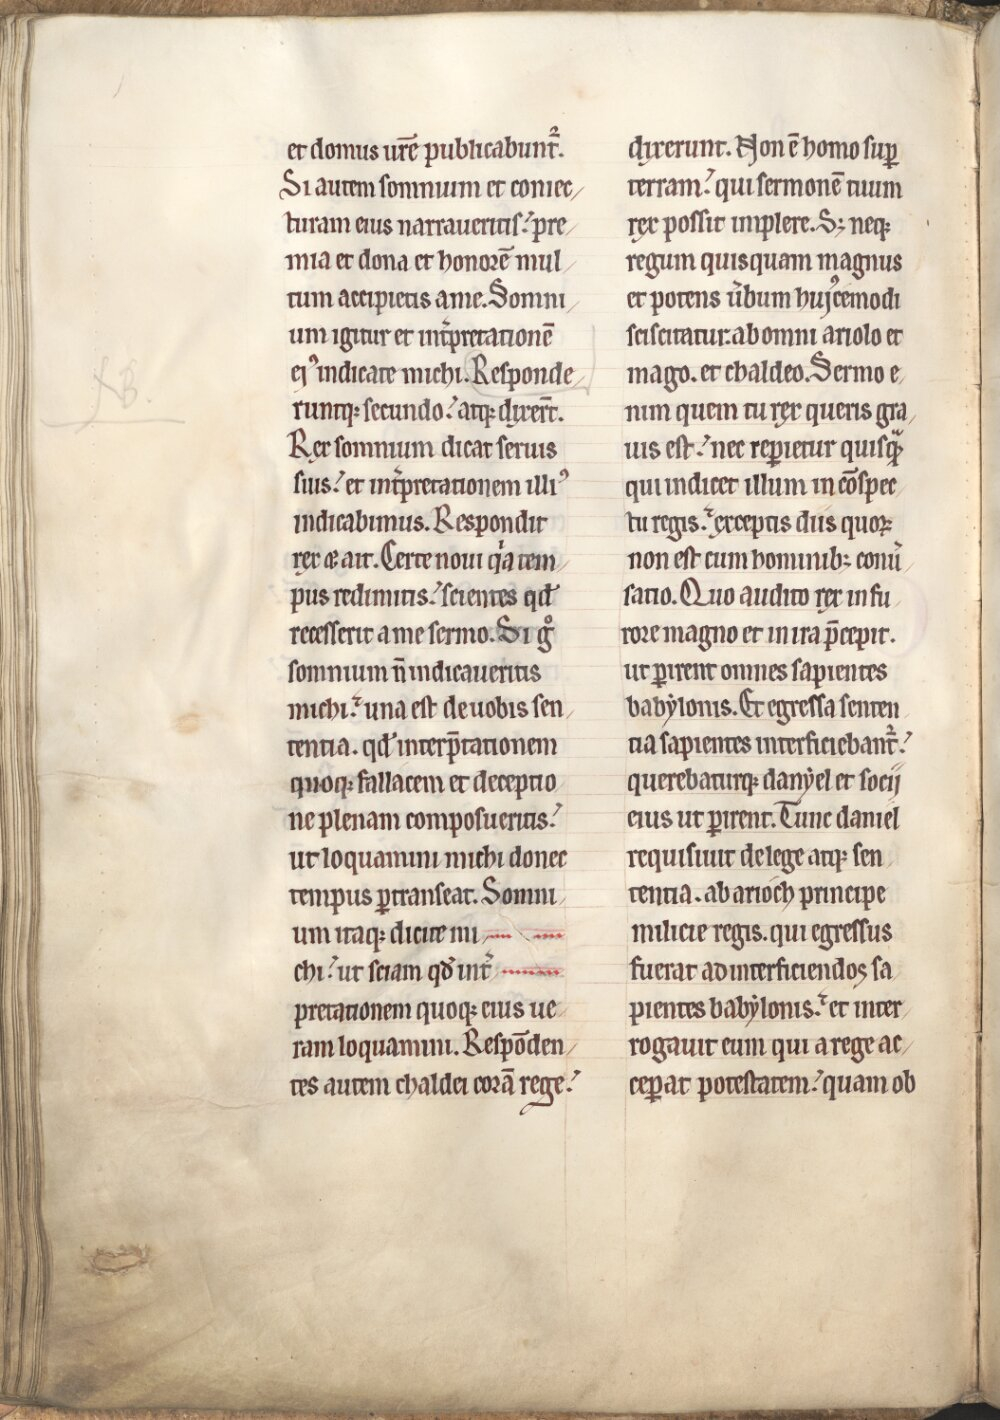 et domus ur̄e publicabunt᷑.
Si autem somnium et coniec/
turam eius narraueritis? pre/
mia et dona et honorē mul/
tum accipietis a me. Somni/
um igitur et int͛pretationē
eiꝰ indicate michi. Responde/
runtqꝫ secundo? atqꝫ dixer̄t.
Rex somnium dicat seruis
suis? et int͛pretationem illiꝰ
indicabimus. Respondit
rex & ait. Certe noui qͥa tem/
pus redimitis? scientes qd̓
recesserit a me sermo. Si gͦ
somnium n̄ indicaueritis
michi? una est de uobis sen/
tentia. qd̓ interp̄tationem
quoqꝫ fallacem et deceptio/
ne plenam composueritis?
ut loquamini michi donec
tempus ꝑtranseat. Somni/
um itaqꝫ dicite mi
chi? ut sciam qd̓ int͛
pretationem quoqꝫ eius ue/
ram loquamini. Respōden/
tes autem chaldei corā rege?
dixerunt. Non ē homo suꝑ
terram? qui sermonē tuum
rex possit implere. Sꝫ neqꝫ
regum quisquam magnus
et potens u͛bum huiꝰcemodi
sciscitatur. ab omni ariolo et
mago. et chaldeo. Sermo e/
nim quem tu rex queris gra/
uis est? nec reꝑietur quisqᷓ
qui indicet illum in cōspec/
tu regis? exceptis diis quoꝝ
non est cum hominibꝫ conu͛
satio. Quo audito rex in fu/
rore magno et in ira p̄cepit.
ut ꝑirent omnes sapientes
babylonis. Et egressa senten/
tia sapientes interficiebant᷑?
querebaturqꝫ danyel et socij
eius ut ꝑirent. Tunc daniel
requisiuit de lege atqꝫ sen/
tentia. ab arioch principe
milicie regis. qui egressus
fuerat ad interficiendos sa/
pientes babylonis? et inter/
rogauit eum qui a rege ac/
ceꝑat potestatem? quam ob